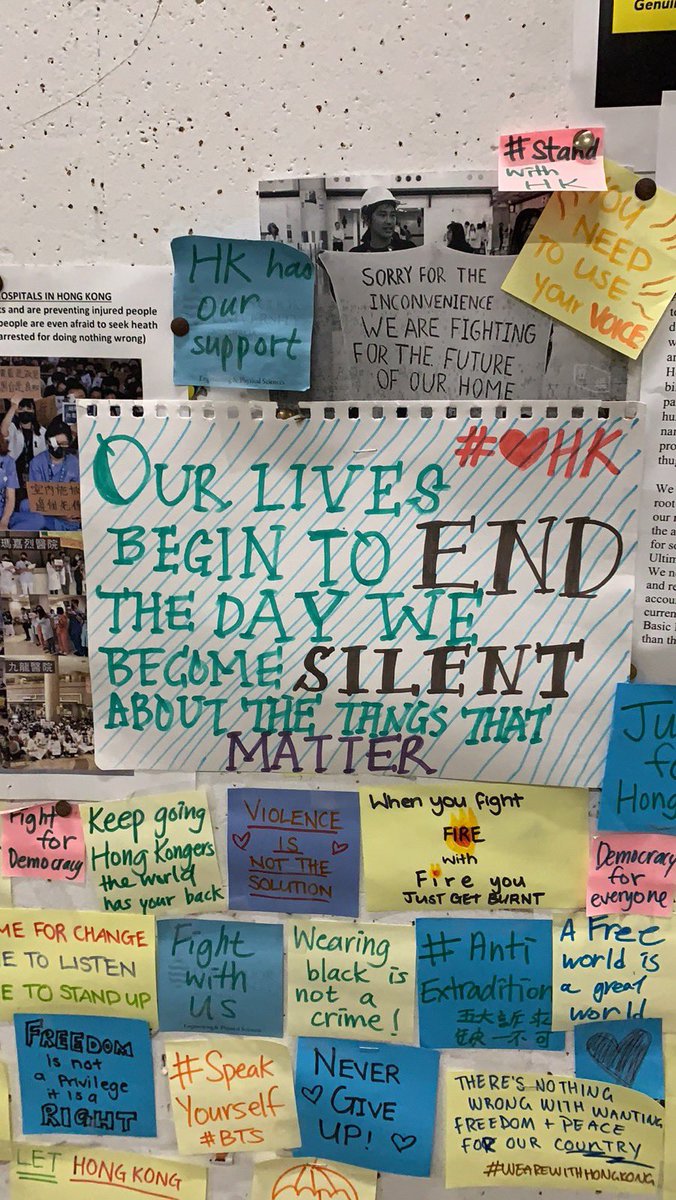 Genuin
#Stand
with
HK
YOU
NEED
TO USE
Your VOICE
HK has
our
support
Engineering & Physical Sciences
SORRY FOR THE
INCONVENIENCE
WE ARE FIGHTING
FOR THE FUTURE
OF OUR HOME
OSPITALS IN HONG KONG
ts and are preventing injured people
people are even afraid to seek heath
arrested for doing nothing wrong)
瑪嘉烈醫院
九龍醫院
#♥HK
OUR LIVES
BEGIN TO END
THE DAY WE
BECOME SILENT
ABOUT THE THINGS THAT
MATTER
We
root
our r
the a
for so
Ultim
We n
and re
accou
curren
Basic
than th
Ju
fo
Hong
Fight
for
Democracy
Keep going
Hong Kongers
the world
has your back
VIOLENCE
IS
NOT THE
SOLUTION
When you fight
FIRE
with
Fire you
JUST GET BURNT
Democracy
for
everyone
ME FOR CHANGE
E TO LISTEN
E TO STAND UP
Fight
with
US
Engineering & Physical Sciences
Wearing
black is
not a
crime!
# Anti
Extradition
五大訴求
缺一不可
A Free
world is
a great
world
FREEDOM
IS not
a Privilege
it is a
RIGHT
#Speak
Yourself
#BTS
NEVER
GIVE
UP!
THERE'S NOTHING
WRONG WITH WANTING
FREEDOM + PEACE
FOR OUR COUNTRY
#WEAREWITHHONGKONG
LET HONG KONG